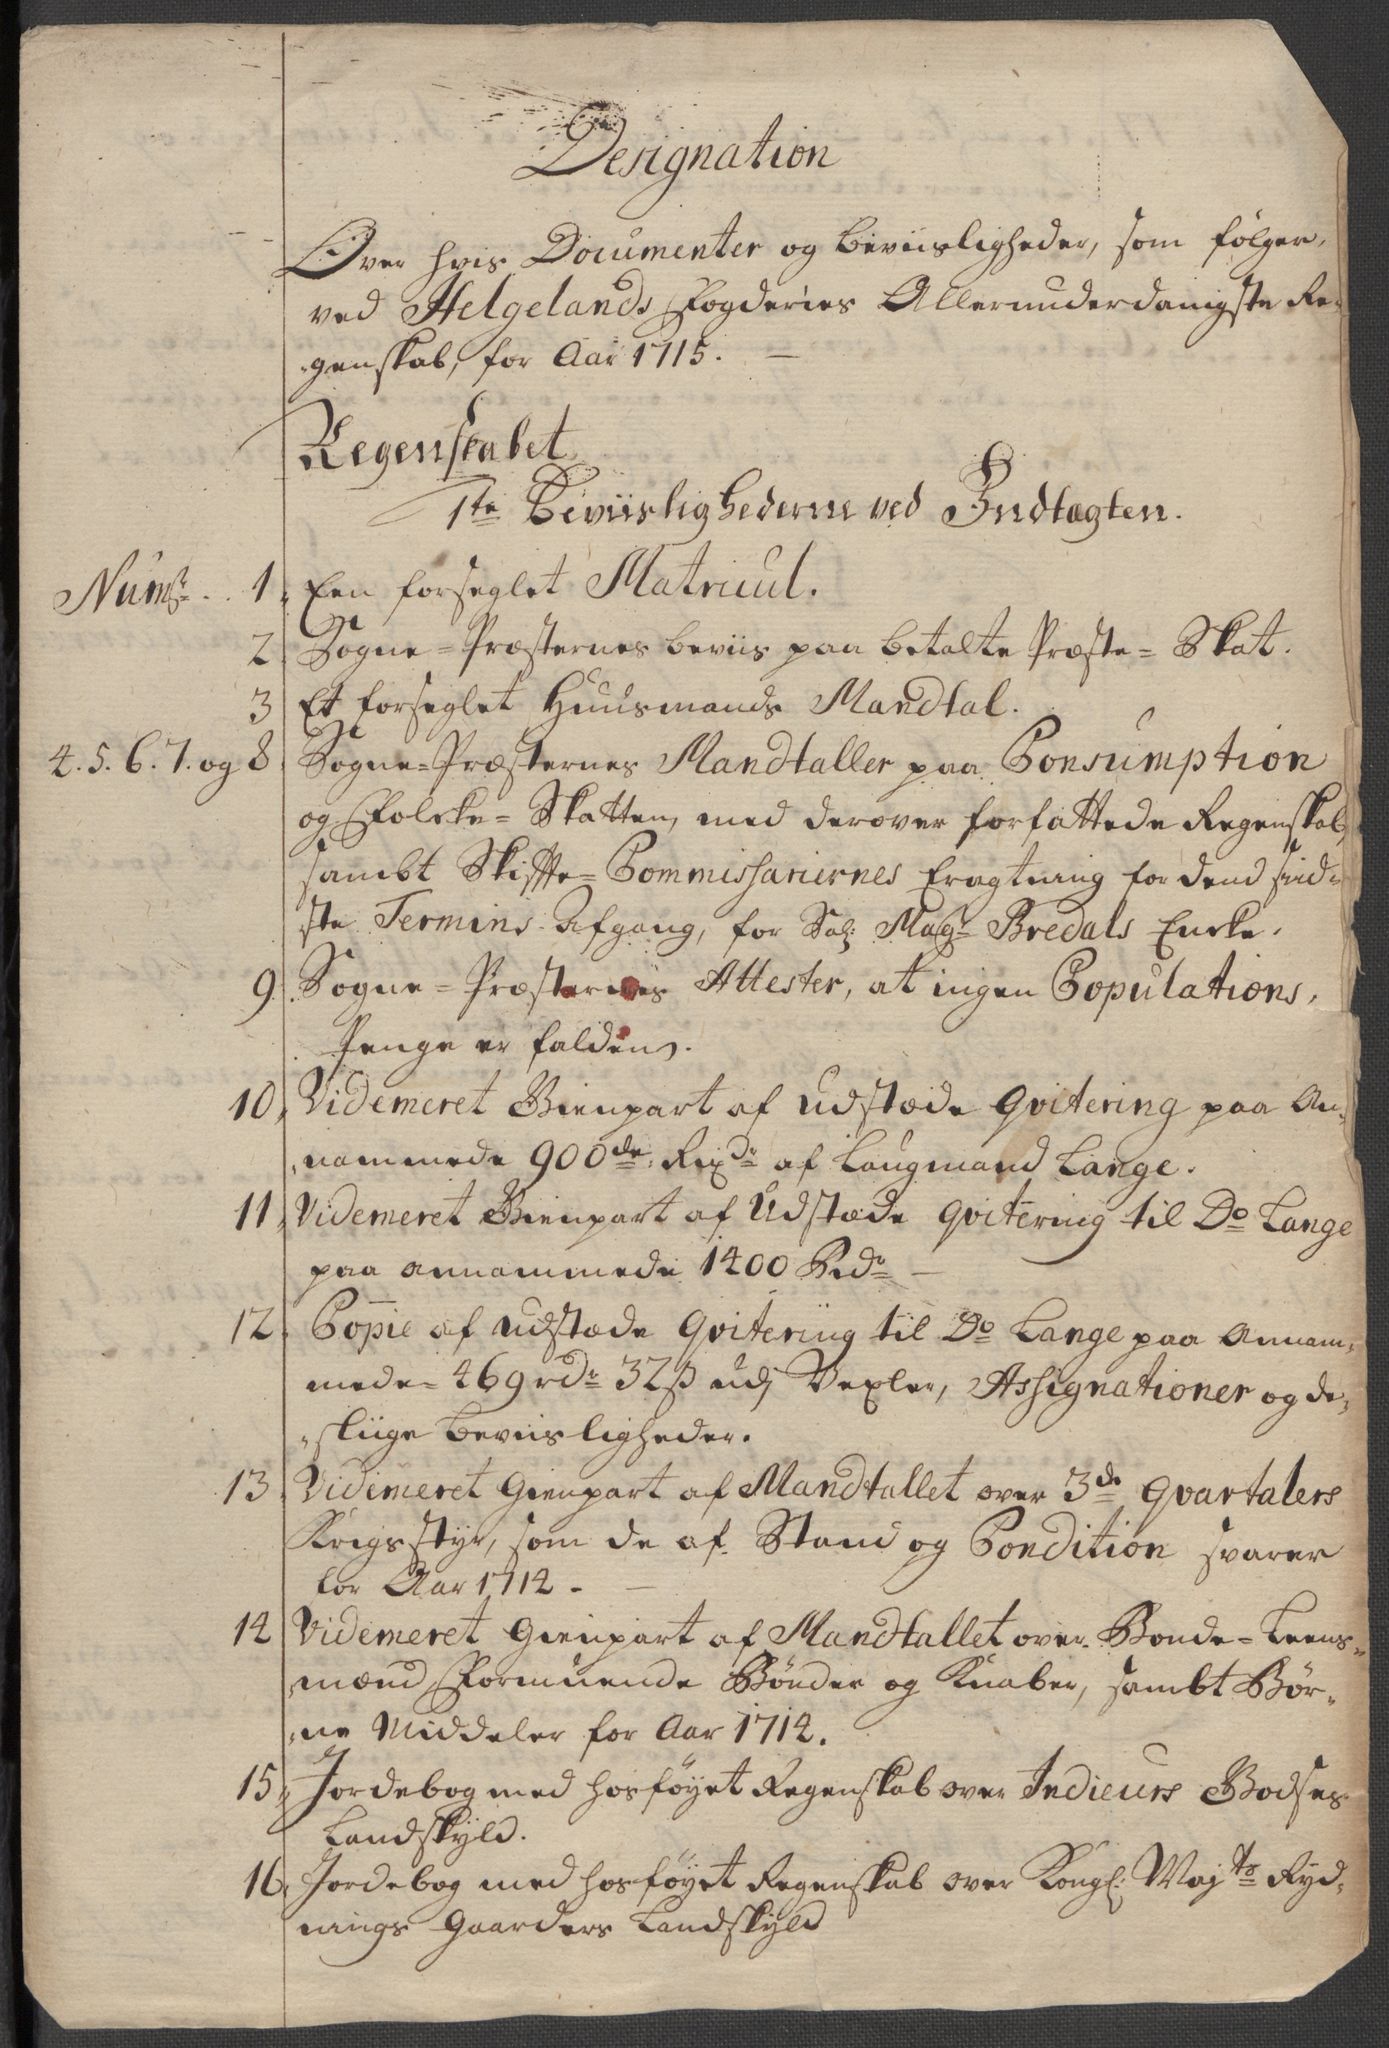 Designation
Over hvis Documenter og beviisligheder, som følger,
ved Helgelands Fogderies Allerunderdanigste Re-
genskab, for Aar 1715. —
Regenskabet
1te Beviislighederne ved Indtægten.
Numr. . 1. Een forseglet Matricul.
2. Sogne-Præsternes beviis paa betalte Præste-Skat.
3 Et forseglet Huusmands Mandtal.
4. 5. 6. 7. og 8. Sogne-Præsternes Mandtaller paa Consumption
og Folcke-Skatten, med derover forfattede Regenskab,
sambt Skifte-Commissariernes Eragtning for dend siid-
ste Termins Afgang, for Sal: Magr Bredals Encke.
9. Sogne-Præsternes Attester, at ingen Copulations,
Penge er falden.
10, Videmeret Gienpart af udstæde Qvitering paa An-
nammede 900de Rixdr af Laugmand Lange.
11, Videmeret Gienpart af Udstæde Qvitering til Do Lange
paa annammede 1400 Rdr —
12. Copie af udstæde Qvitering til Do Lange paa Annam-
mede 469 rdr 32 ß udj Vexler, Assignationer og de-
sliige beviisligheder.
13. Videmeret Gienpart af Mandtallet over 3de Qvartalers
Krigs styr, som de af Stand og Condition svarer
for Aar 1714. —
14 Videmeret Gienpart af Mandtallet over Bonde-Leens-
mænd, Formuende Bønder og Knaber, sambt Bør-
ne Middeler for Aar 1714.
15, Jordebog med hosføyet Regenskab over Indieurs Godses
Landskyld.
16, Jordebog med hosføyet Regenskab over Kongl: Majts Ryd-
nings Gaarders Landskyld